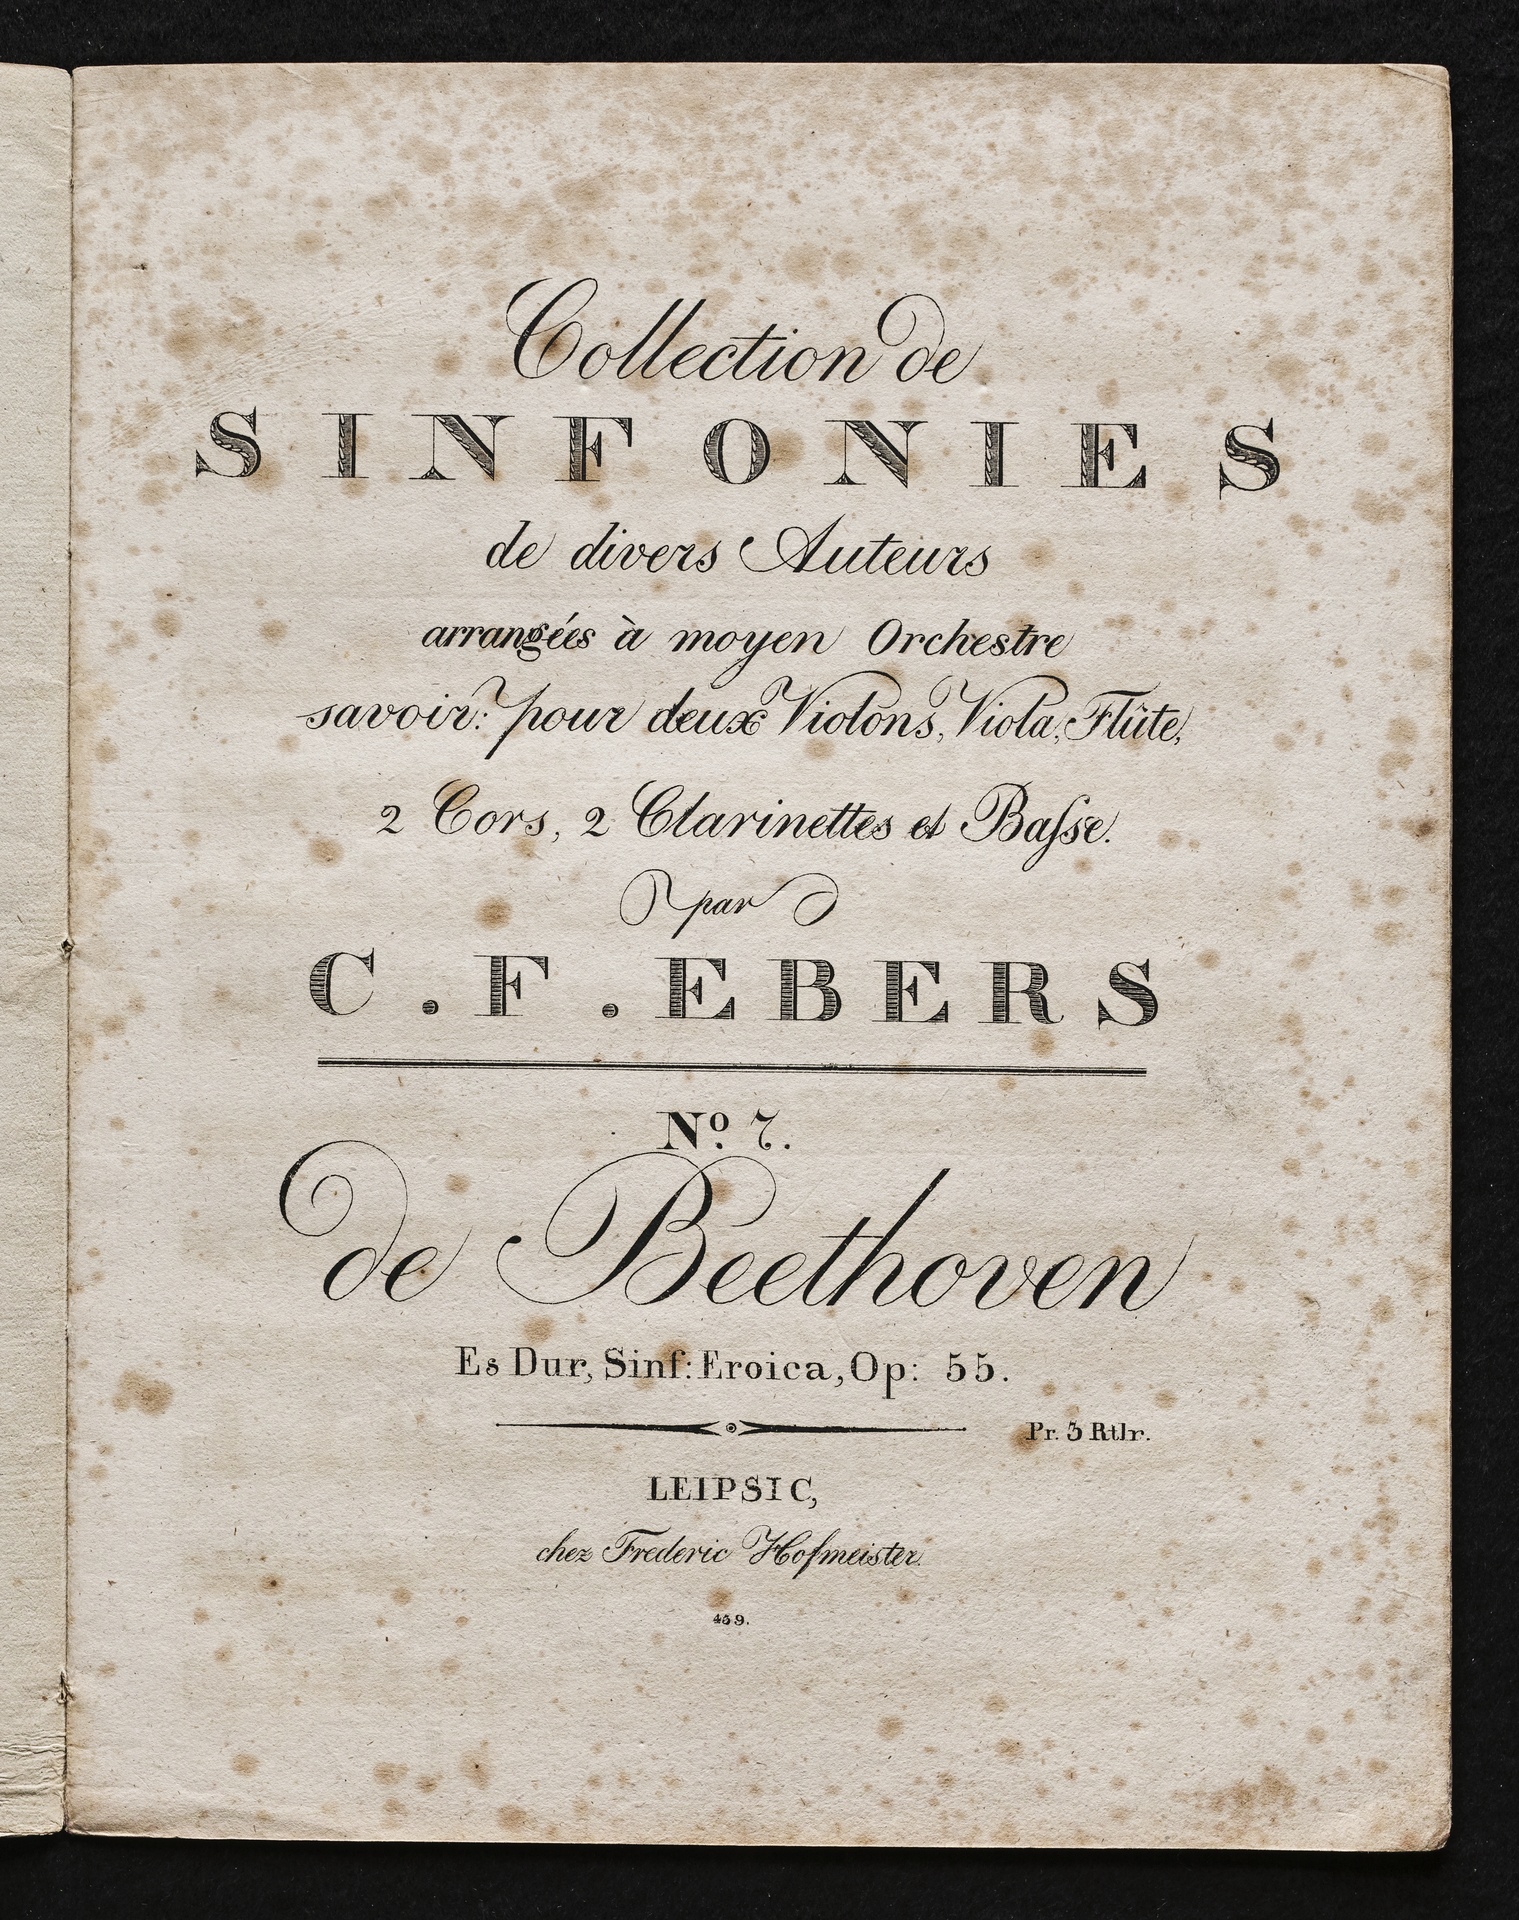 Collection de
SINFONIES
de divers Auteurs
arrangées à moyen Orchestre
savoir: pour deux Violons, Viola, Flûte,
2 Cors, 2 Clarinettes et Baſse.
par
C. F. EBERS
No. 7.
de Beethoven
Es Dur, Sinf: Eroica, Op: 55.
Pr. 3 Rtlr.
LEIPSIC,
chez Frederic Hofmeister.
459.